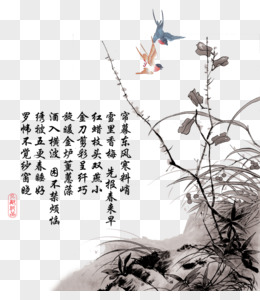 帘幕东风寒料峭
雪里香梅 先报春来早
红蜡枝头双燕小
金刀剪彩呈纤巧
旋暖金炉薰蕙藻
酒入横波 困不禁烦恼
绣被五更春睡好
罗帏不觉纱窗晓